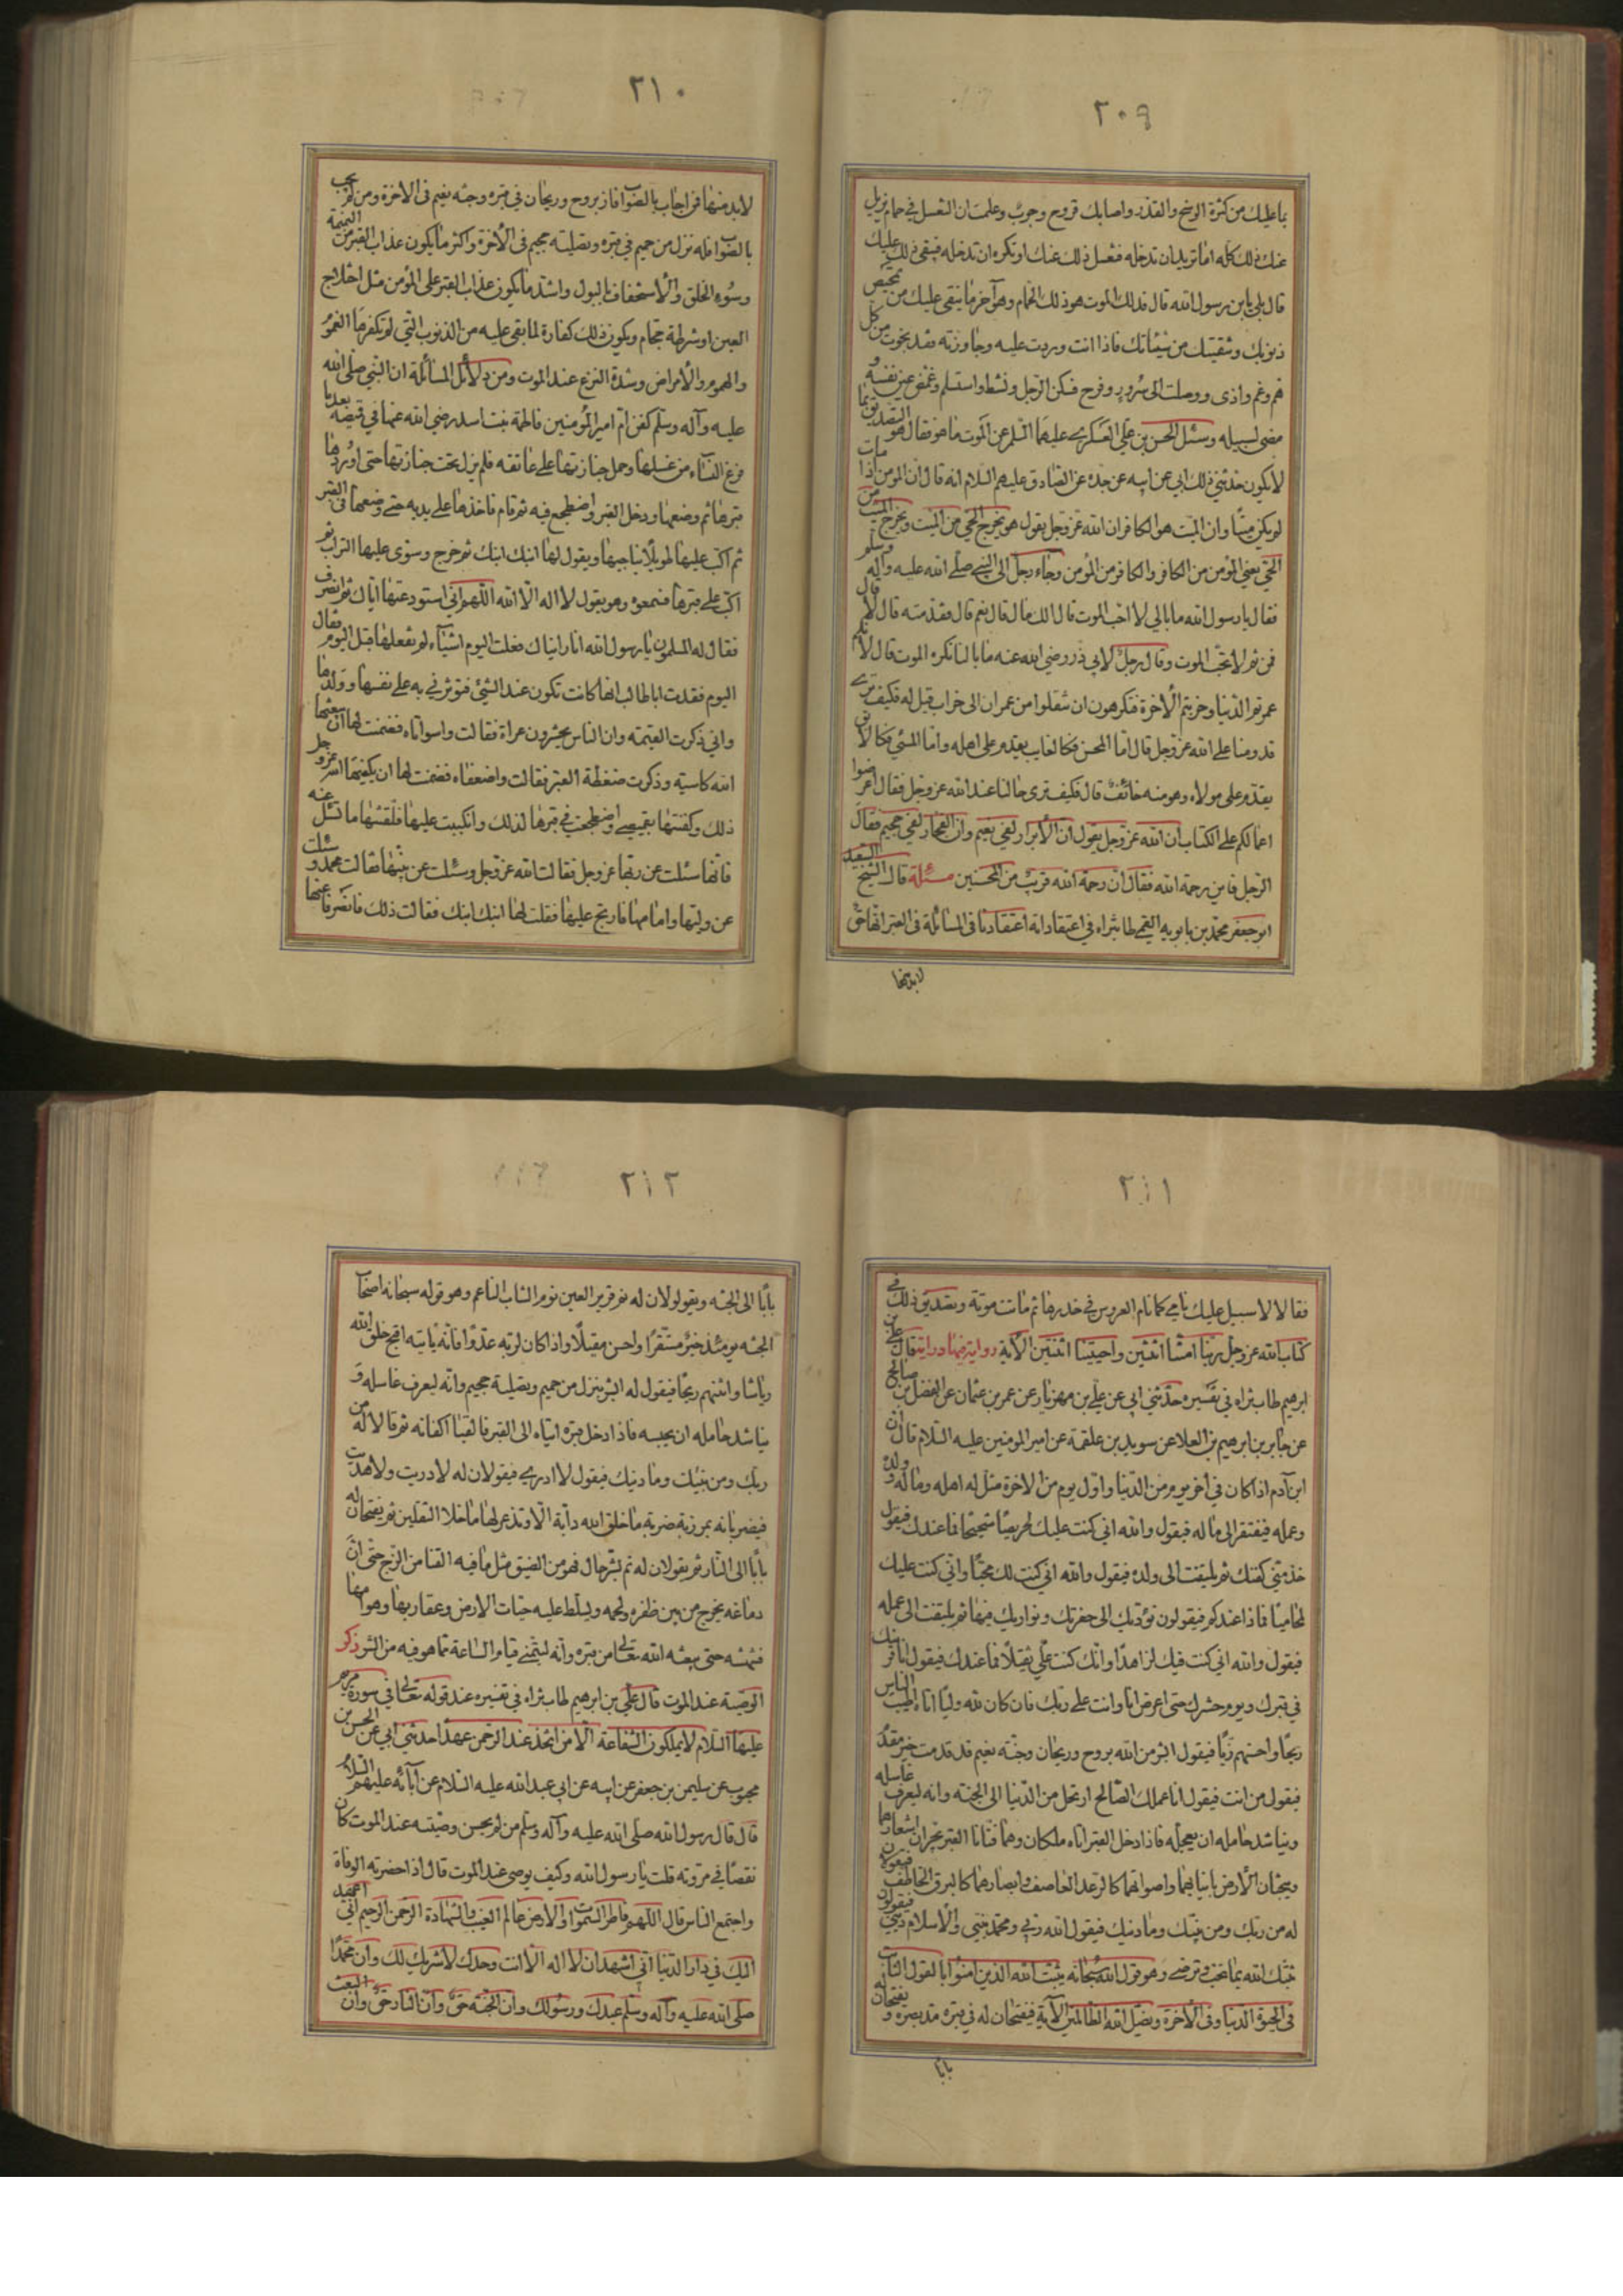 ٢٠٩
بما عليك من كثرة الوسخ والقذر واصابك قروح وجرب وعلمت ان الغسل في حمام يزيل
عنك ذلك كله اما تريد ان تدخله فتغسل ذلك عنك او تكره ان تدخله فيبقى ذلك عليك
قال بلى يا بن رسول الله قال فذلك الموت هو ذلك الحمام وهو آخر ما بقى عليك من تمحيص
ذنوبك وتنقيتك من سيئاتك فاذا انت وردت عليه وجاوزته فقد نجوت من كل
هم وغم واذى ووصلت الى سرور وفرح فسكن الرجل ونشط واستسلم وغمض عين نفسه و
مضى لسبيله وسئل الحسن بن علي العسكري عليهما السلم عن الموت ما هو فقال هو التصديق بما
لا يكون حدثني ذلك ابي عن ابيه عن جده عن الصادق عليهم السلام انه قال ان المؤمن اذا مات
لم يكن ميتا وان الميت هو الكافر ان الله عز وجل يقول هو يخرج الحي من الميت ويخرج الميت من
الحي يعني المؤمن من الكافر والكافر من المؤمن وجاء رجل الى النبي صلى الله عليه وآله وسلم
فقال يا رسول الله ما بالي لا احب الموت قال الك مال قال نعم قال فقدمته قال لا قال
فمن ثم لا تحب الموت وقال رجل لابي ذر رضي الله عنه ما بالنا نكره الموت قال لانكم
عمرتم الدنيا وخربتم الآخرة فتكرهون ان تنقلوا من عمران الى خراب قيل له فكيف ترى
قدومنا على الله عز وجل قال اما المحسن فكالغايب يقدم على اهله واما المسئ فكالآبق
يقدم على مولاه وهو منه خائف قال فكيف ترى حالنا عند الله عز وجل فقال اعرضوا
اعمالكم على الكتاب ان الله عز وجل يقول ان الابرار لفي نعيم وان الفجار لفي جحيم فقال
الرجل فاين رحمة الله فقال ان رحمة الله قريب من المحسنين مسئلة قال الشيخ السعيد
ابو جعفر محمد بن بابويه القمي طاب ثراه في اعتقاداته اعتقادنا في المسائلة في القبر انها حق
لابد منها
٢١٠
لابد منها فمن اجاب بالصواب فاز بروح وريحان في قبره وجنة نعيم في الآخرة ومن لم يجب
بالصواب فله نزل من حميم في قبره وتصلية جحيم في الآخرة واكثر ما يكون عذاب القبر من النميمة
وسوء الخلق والاستخفاف بالبول واشد ما يكون عذاب القبر على المؤمن مثل اختلاج
العين او شرطة حجام ويكون ذلك كفارة لما بقى عليه من الذنوب التي لم تكفرها الغموم
والهموم والامراض وشدة النزع عند الموت ومن دلائل المسائلة ان النبي صلى الله
عليه وآله وسلم كفن ام امير المؤمنين فاطمة بنت اسد رضي الله عنها في قميصه بعد ما
فرغ النساء من غسلها وحمل جنازتها على عاتقه فلم يزل تحت جنازتها حتى اوردها
قبرها ثم وضعها ودخل القبر واضطجع فيه ثم قام فاخذها على يديه حتى وضعها في القبر
ثم اكب عليها طويلا يناجيها ويقول لها ابنك ابنك ثم خرج وسوى عليها التراب ثم
اكب على قبرها فسمعوه وهو يقول لا اله الا الله اللهم اني استودعتها اياك ثم انصرف
فقال له المسلمون يا رسول الله انا رايناك فعلت اليوم اشياء لم تفعلها قبل اليوم فقال
اليوم فقدت ابا طالب انها كانت تكون عند الشئ فتوثرني به على نفسها وولدها
واني ذكرت القيمة وان الناس يحشرون عراة فقالت واسواتاه فضمنت لها ان يبعثها
الله كاسية وذكرت ضغطة القبر فقالت واضعفاه فضمنت لها ان يكفيها الله عز وجل
ذلك وكفنتها بقميصي واضطجعت في قبرها لذلك وانكببت عليها فلقنتها ما تسئل عنه
فانها سئلت عن ربها عز وجل فقالت الله عز وجل وسئلت عن نبيها فقالت محمد وسئلت
عن وليها وامامها فارتج عليها فقلت لها ابنك ابنك فقالت ذلك فانصرفا عنها
٢١١
فقالا لا سبيل عليك نامي كما تنام العروس في خدرها ثم ماتت موتة وتصديق ذلك في
كتاب الله عز وجل ربنا امتنا اثنتين واحييتنا اثنتين الآية رواية فيها دراية قال علي بن
ابرهيم طاب ثراه في تفسيره حدثني ابي عن علي بن مهزيار عن عمر بن عثمان عن المفضل بن صالح
عن جابر بن ابرهيم بن العلا عن سويد بن علقمة عن امير المؤمنين عليه السلام قال ان
ابن آدم اذا كان في آخر يوم من الدنيا واول يوم من الآخرة مثل له اهله وماله وولده
وعمله فيلتفت الى ماله فيقول والله اني كنت عليك لحريصا شحيحا فما عندك فيقول
خذ مني كفنك ثم يلتفت الى ولده فيقول والله اني كنت لك محبا واني كنت عليك
لحاميا فماذا عندكم فيقولون نؤديك الى حفرتك ونواريك فيها ثم يلتفت الى عمله
فيقول والله اني كنت فيك لزاهدا وانك كنت علي ثقيلا فما عندك فيقول انا قرينك
في قبرك ويوم حشرك حتى اعرض انا وانت على ربك فان كان لله وليا اتاه اطيب الناس
ريحا واحسنهم زيا فيقول ابشر من الله بروح وريحان وجنة نعيم قد قدمت خير مقدم
فيقول من انت فيقول انا عملك الصالح ارتحل من الدنيا الى الجنة وانه ليعرف غاسله
ويناشد حامله ان يعجله فاذا ادخل القبر اتاه ملكان وهما فتانا القبر يجران اشعارهما
ويبحثان الارض بانيابهما واصواتهما كالرعد العاصف وابصارهما كالبرق الخاطف فيقولان
له من ربك ومن نبيك وما دينك فيقول الله ربي ومحمد نبيي والاسلام ديني فيقولون
ثبتك الله بما تحب وترضى وهو قول الله سبحانه يثبت الله الذين امنوا بالقول الثابت
في الحيوة الدنيا وفي الآخرة ويضل الله الظالمين الآية فيفتحان له في قبره مد بصره ويفتحان
بابا
٢١٢
بابا الى الجنة ويقولان له نم قرير العين نوم الشاب الناعم وهو قوله سبحانه اصحاب
الجنة يومئذ خير مستقرا واحسن مقيلا واذا كان لربه عدوا فانه ياتيه اقبح خلق الله
رياشا وانتنهم ريحا فيقول له ابشر بنزل من حميم وتصلية جحيم وانه ليعرف غاسله و
يناشد حامله ان يحبسه فاذا ادخل قبره اتياه الى القبر فالقيا اكفانه ثم قالا له من
ربك ومن نبيك وما دينك فيقول لا ادري فيقولان له لا دريت ولا هديت
فيضربانه بمرزبة ضربة ما خلق الله دابة الا وتذعر لها ما خلا الثقلين ثم يفتحان له
بابا الى النار ثم يقولان له نم بشر حال فهو من الضيق مثل ما فيه القنا من الزج حتى ان
دماغه يخرج من بين ظفره ولحمه ويسلط عليه حيات الارض وعقاربها وهوامها
فتنهشه حتى يبعثه الله تعالى من قبره وانه ليتمنى قيام الساعة مما هو فيه من الشر ذكر
الوصية عند الموت قال علي بن ابرهيم طاب ثراه في تفسيره عند قوله تعالى في سورة مريم
عليها السلام لا يملكون الشفاعة الا من اتخذ عند الرحمن عهدا حدثني ابي عن الحسن بن
محبوب عن سليمن بن جعفر عن ابيه عن ابي عبد الله عليه السلام عن آبائه عليهم السلام
قال قال رسول الله صلى الله عليه وآله وسلم من لم يحسن وصيته عند الموت كان
نقصا في مروته قلت يا رسول الله وكيف يوصي عند الموت قال اذا حضرته الوفاة
واجتمع الناس قال اللهم فاطر السموات والارض عالم الغيب والشهادة الرحمن الرحيم اني اعهد
اليك في دار الدنيا اني اشهد ان لا اله الا انت وحدك لا شريك لك وان محمدا
صلى الله عليه وآله وسلم عبدك ورسولك وان الجنة حق وان النار حق وان البعث